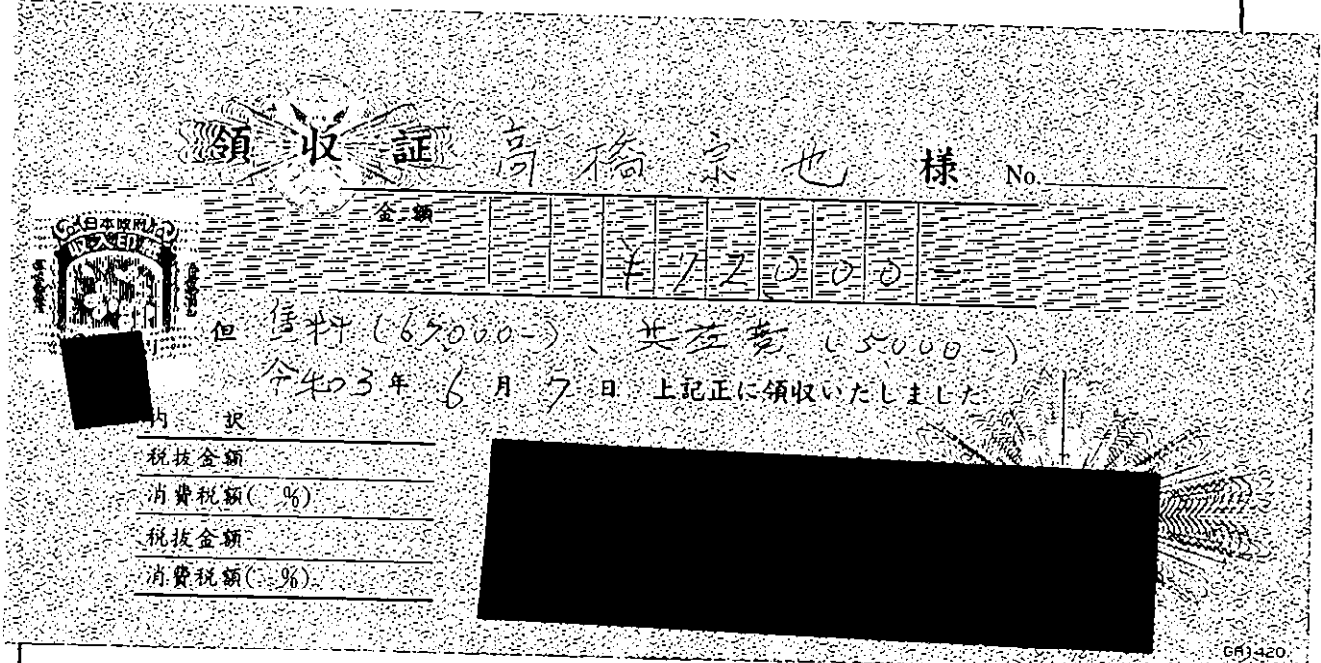 領収証 高橋宗也 様 No.
金額 ¥72000
日本政府
収入印紙
但 賃料(67,000-)、共益費(5,000-)
令和3年 6月 7日 上記正に領収いたしました
内訳
税抜金額
消費税額( %)
税抜金額
消費税額( %)
GR1420